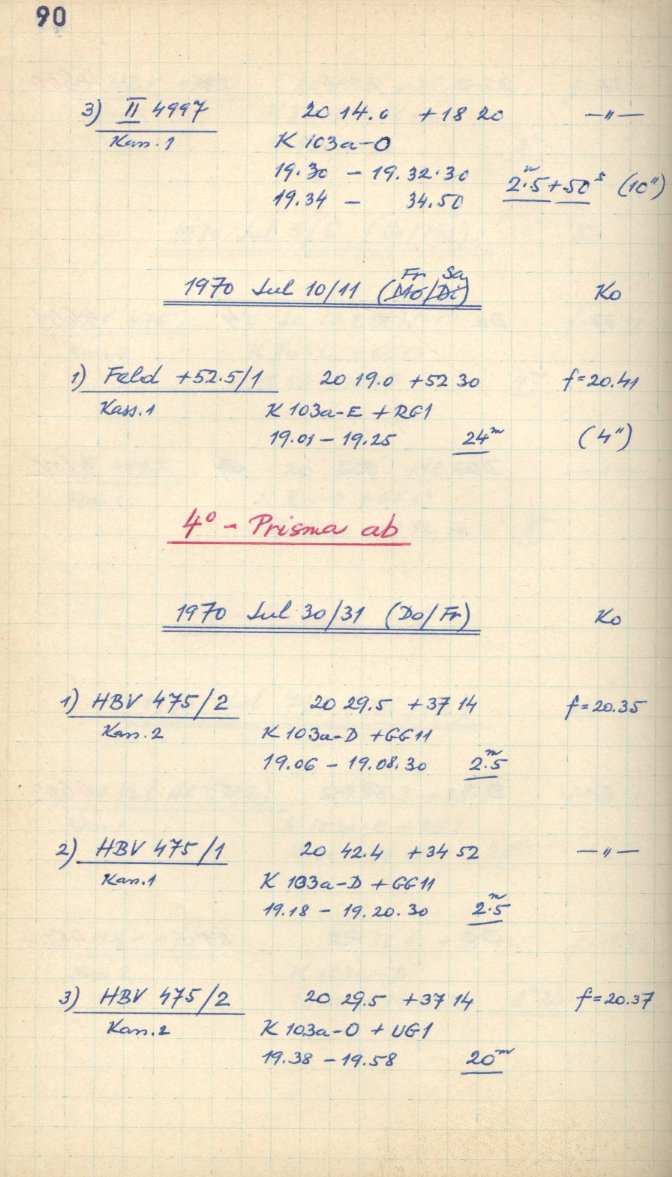 90
3) II 4997 20 14.0 +18 20 —〃—
Kass. 1 K 103a-O
19.30 – 19.32.30 2.5ᵐ+50ˢ (10")
19.34 – 34.50
Fr Sa
1970 Jul 10/11 (Mo/Di) Ko
1) Feld +52.5/1 20 19.0 +52 30 f=20.41
Kass. 1 K 103a-E + RG1
19.01 – 19.25 24ᵐ (4")
4° – Prisma ab
1970 Jul 30/31 (Do/Fr) Ko
1) HBV 475/2 20 29.5 +37 14 f=20.35
Kass. 2 K 103a-D + GG11
19.06 – 19.08.30 2.5ᵐ
2) HBV 475/1 20 42.4 +34 52 —〃—
Kass. 1 K 103a-D + GG11
19.18 – 19.20.30 2.5ᵐ
3) HBV 475/2 20 29.5 +37 14 f=20.37
Kass. 2 K 103a-O + UG1
19.38 – 19.58 20ᵐ